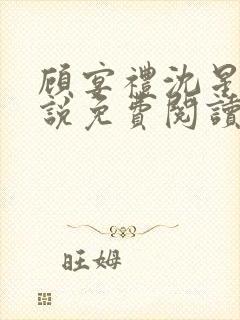 顾宴禮沈星
說免費閱讀
旺姆